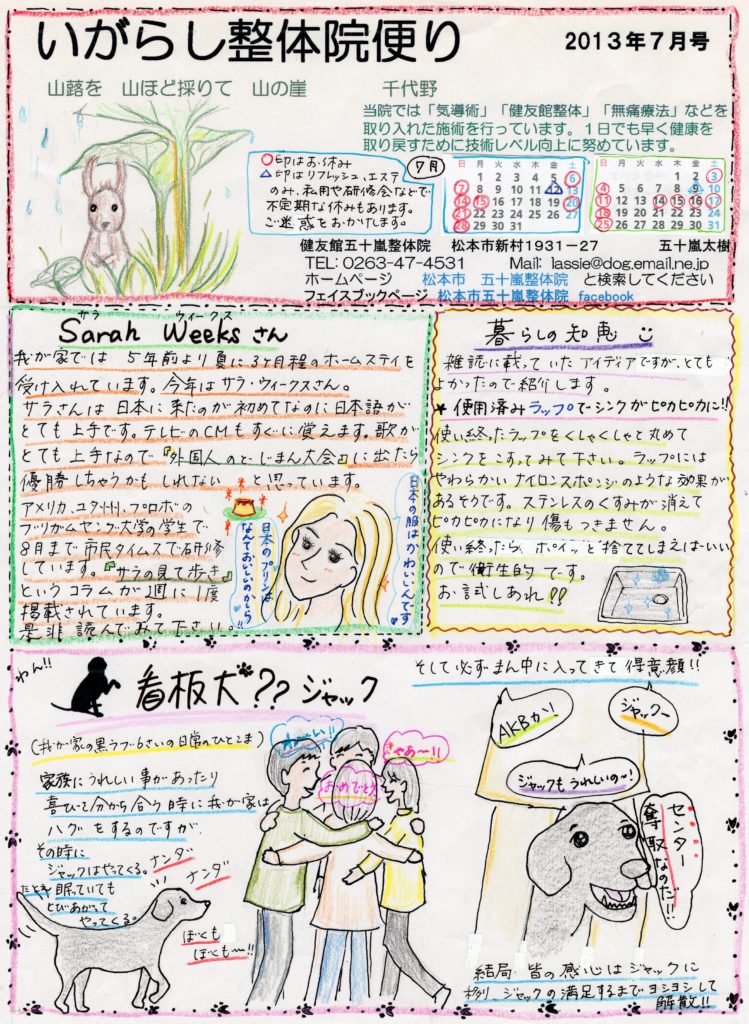 いがらし整体院便り
2013年7月号
山蕗を　山ほど採りて　山の崖　　千代野
当院では「気導術」「健友館整体」「無痛療法」などを
取り入れた施術を行っています。１日でも早く健康を
取り戻すために技術レベル向上に努めています。
○印はお休み
△印はリフレッシュ、エステ
のみ、私用や研修会などで
不定期な休みもあります。
ご迷惑をおかけします。
7月
日 月 火 水 木 金 土
1 2 3 4 5 6
7 8 9 10 11 12 13
14 15 16 17 18 19 20
21 22 23 24 25 26 27
28 29 30 31
日 月 火 水 木 金 土
1 2 3
4 5 6 7 8 9 10
11 12 13 14 15 16 17
18 19 20 21 22 23 24
25 26 27 28 29 30 31
健友館五十嵐整体院　松本市新村1931－27　五十嵐太樹
TEL: 0263-47-4531　Mail: lassie@dog.email.ne.jp
ホームページ　松本市　五十嵐整体院　と検索してください
フェイスブックページ 松本市五十嵐整体院 facebook
サラ　ウィークス
Sarah Weeksさん
我が家では　5年前より夏に3ヶ月程のホームステイを
受け入れています。今年はサラ・ウィークスさん。
サラさんは日本に来たのが初めてなのに日本語が
とても上手です。テレビのCMもすぐに覚えます。歌が
とても上手なので『外国人のどじまん大会』に出たら
優勝しちゃうかもしれない　と思っています。
アメリカ、ユタ州、プロボの
ブリガムヤング大学の学生で
8月まで市民タイムスで研修
しています。『サラの見て歩き』
というコラムが週に1度
掲載されています。
是非読んでみて下さい。
日本のプリンは
なんておいしいのかしら!!
日本の服はかわいいんです
暮らしの知恵
雑誌に載っていたアイディアですが、とても
よかったので紹介します。
★使用済みラップでシンクがピカピカに!!
使い終ったラップをくしゃくしゃと丸めて
シンクをこすってみて下さい。ラップには
やわらかいナイロンスポンジのような効果が
あるそうです。ステンレスのくすみが消えて
ピカピカになり傷もつきません。
使い終ったら、ポイッと捨ててしまえばいい
ので衛生的です。
お試しあれ!!
わん!!
看板犬?? ジャック
(我が家の黒ラブ6さいの日常のひとこま)
家族にうれしい事があったり
喜びを分かち合う時に我が家は
ハグをするのですが
その時に
ジャックはやってくる。
たとえ眠っていても
とびあがって
やってくる。
ナンダ
ナンダ
ぼくも
ぼくも〜!!
わーい!!
きゃあ〜!!
おめでとう
そして必ずまん中に入ってきて得意顔!!
AKBか!
ジャックー
ジャックもうれしいの〜!
センター
奪取なのだ!!
結局　皆の感心はジャックに
移り、ジャックの満足するまでヨシヨシして
解散!!